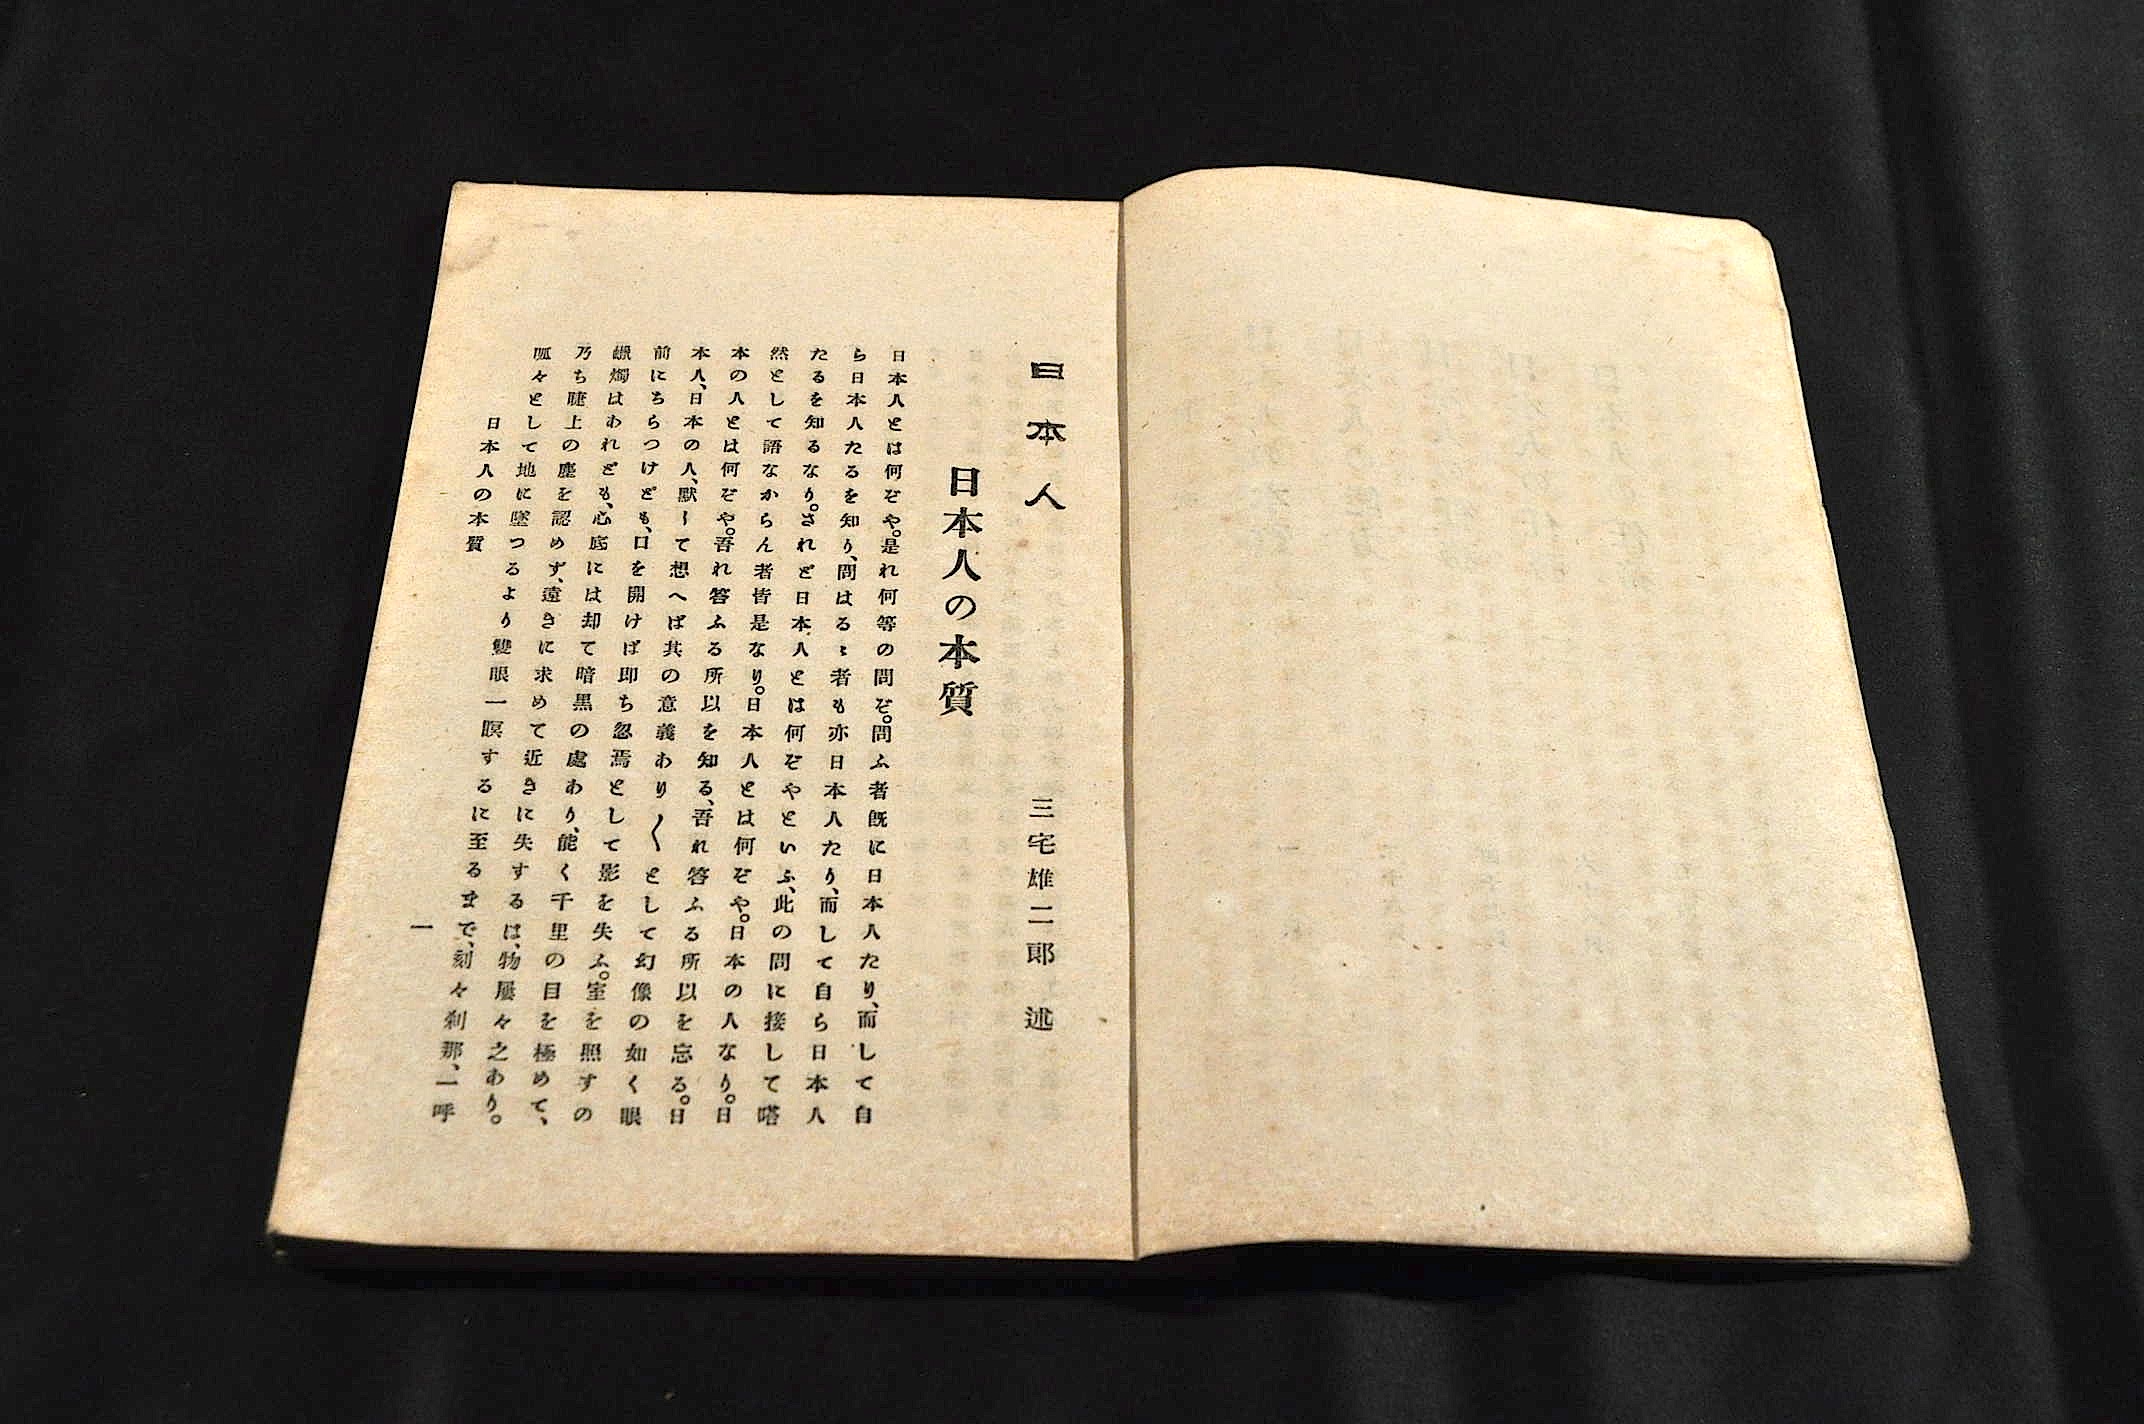 日本人
三宅雄二郎 述
日本人の本質
日本人とは何ぞや。是れ何等の問ぞ。問ふ者既に日本人たり、而して自
ら日本人たるを知り、問はるゝ者も亦日本人たり、而して自ら日本人
たるを知るなり。されど日本人とは何ぞやといふ、此の問に接して嗒
然として語なからん者皆是なり。日本人とは何ぞや。日本の人なり。日
本の人とは何ぞや。吾れ答ふる所以を知る、吾れ答ふる所以を忘る。日
本人、日本の人、默して想へば其の意義あり〱として幻像の如く眼
前にちらつけども、口を開けば即ち忽焉として影を失ふ。室を照すの
蠟燭はあれども、心底には却て暗黒の處あり、能く千里の目を極めて、
乃ち睫上の塵を認めず、遠きに求めて近きに失するは、物屢々之あり。
呱々として地に墜つるより雙眼一瞑するに至るまで、刻々刹那、一呼
日本人の本質
一